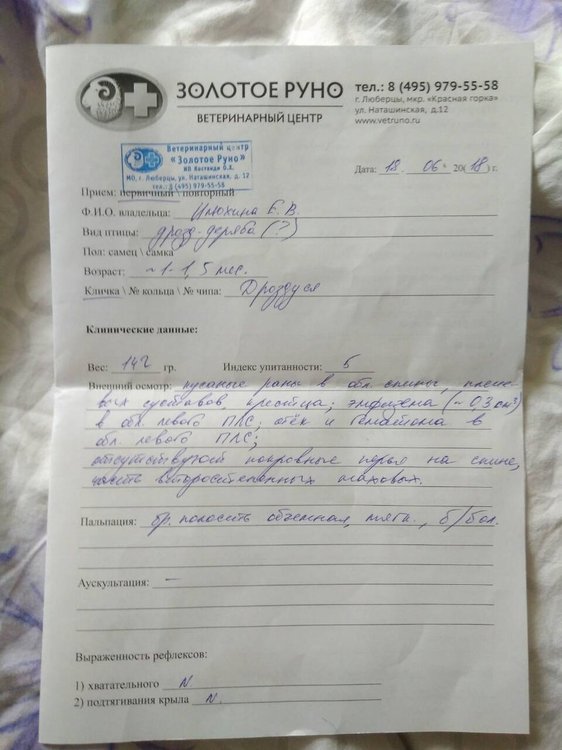 ЗОЛОТОЕ РУНО
ВЕТЕРИНАРНЫЙ ЦЕНТР
тел.: 8 (495) 979-55-58
г. Люберцы, мкр. «Красная горка»
ул. Наташинская, д.12
www.vetruno.ru
Ветеринарный центр
«Золотое Руно»
МО, г. Люберцы, ул. Наташинская, д. 12
тел.: 8 (495) 979-55-58
Дата: 18. 06. 20(18) г.
Прием: первичный \ повторный
Ф.И.О. владельца: Илюхина Е. В.
Вид птицы: дрозд-деряба (?)
Пол: самец \ самка
Возраст: ~ 1-1,5 мес.
Кличка \ № кольца \ № чипа: Дроздуся
Клинические данные:
Вес: 142 гр. Индекс упитанности: 5
Внешний осмотр: кусаные раны в обл. спины, плече-
вых суставов крестца; эмфизема (~ 0,3 см³)
в обл. левого ПЛС, отёк и гематома в
обл. левого ПЛС;
отсутствуют покровные перья на спине,
часть второстепенных маховых.
Пальпация: бр. полость объемная, мягк., б/бол.
Аускультация: —
Выраженность рефлексов:
1) хватательного N
2) подтягивания крыла N.